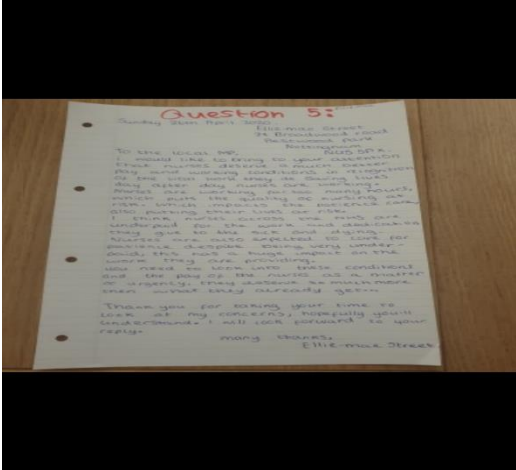 Question 5:
Sunday 26th April 2020
Ellie-mae Street
Broadwood road
Bestwood Park
Nottingham
To the local MP,
I would like to bring to your attention
that nurses deserve a much better
pay and working conditions in recognition
of the work they do saving lives
day after day nurses are working.
Nurses are working far too many hours,
which puts the quality of nursing at
risk. impacts the patience care
also putting their lives at risk.
I think nurses across the are
underpaid for the work and dedication
they give to the sick and dying.
Nurses are also expected to care for
patience despite being very under-
paid, this has a huge impact on the
work they are providing.
You need to look into these conditions
and the pay of the nurses as a matter
of urgency, they deserve so much more
then what they already get.
Thank you for taking your time to
look at my concerns, hopefully you'll
understand. I will look forward to your
reply.
many thanks,
Ellie-mae Street